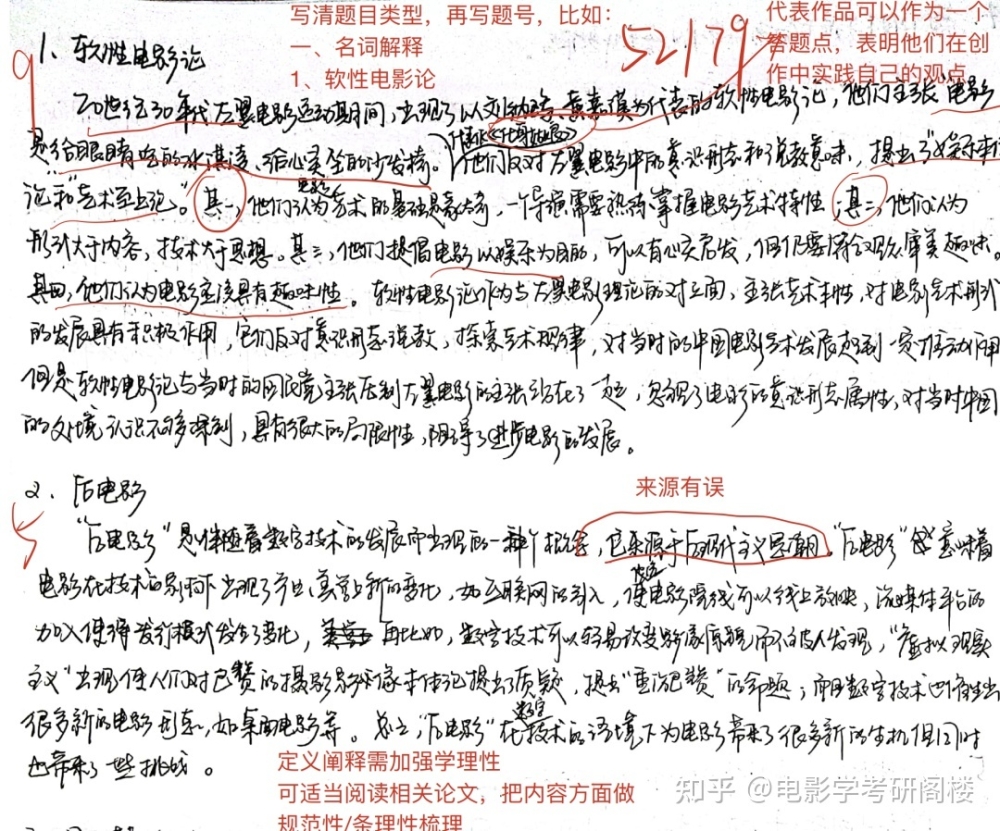 写清题目类型，再写题号，比如：
一、名词解释
1、软性电影论
52+79
代表作品可以作为一个
答题点，表明他们在创
作中实践自己的观点
9
1、软性电影论
20世纪30年代左翼电影运动期间，出现了以刘呐鸥、黄嘉谟为代表的软性电影论，他们主张"电影
是给眼睛吃的冰淇淋，给心灵坐的沙发椅。他们反对左翼电影中的意识形态和说教意味，提出了"娱乐
论"和"艺术至上论"。其一，他们认为电影艺术的基础是 一个导演需要热练掌握电影艺术特性；其二，他们认为
形式大于内容，技术大于思想。其三，他们提倡电影以娱乐为目的，可以有心灵启发，但仍要符合观众审美趣味。
其四，他们认为电影应该具有趣味性。软性电影论作为与左翼电影理论的对立面，主张艺术本性，对电影艺术形式
的发展具有积极作用，它们反对意识形态说教，探索艺术规律，对当时的中国电影艺术发展起到一定推动作用
但是软性电影论与当时的国民党主张压制左翼电影的主张站在了一起，忽视了电影的意识形态属性，对当时中国
的文化境认识不够深刻，具有很大的局限性，阻碍了进步电影的发展。
2、后电影
来源有误
5
"后电影"是伴随着数字技术的发展而出现的一种概念，它来源于后现代主义思潮。"后电影"意味着
电影在技术的影响下出现了产业、美学上新的变化，如互联网的引入，使电影院线可以线上放映，流媒体平台的
加入使得发行模式发生了变化，再比如，数字技术可以轻易改变影像原貌而不被人发现，"虚拟现实
主义"出现使人们对巴赞的摄影影像本体论提出了质疑，提出"重温巴赞"的命题；而且数字技术也催生出
很多新的电影形态，如桌面电影等。总之，"后电影"在数字技术的语境下为电影带来了很多新的生机但同时
也带来了一些挑战。
定义阐释需加强学理性
可适当阅读相关论文，把内容方面做
规范性/条理性梳理
知乎 @电影学考研阁楼